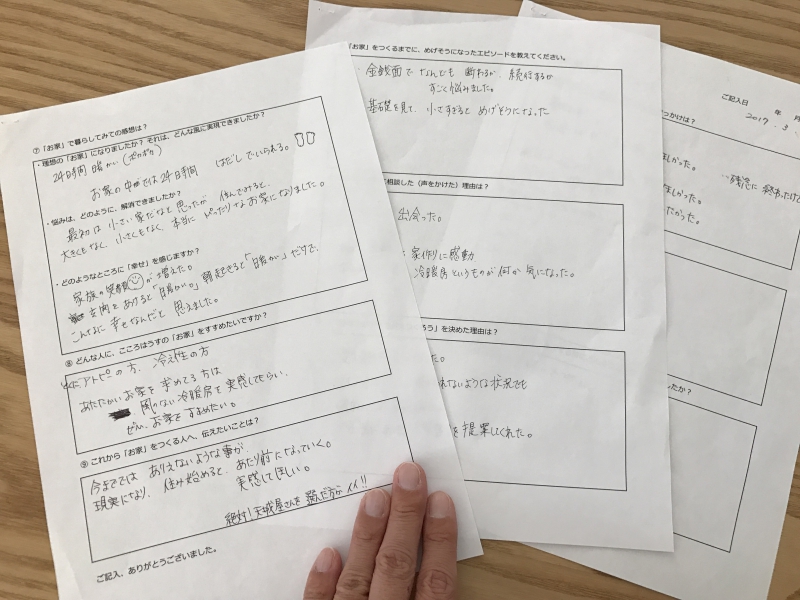 ⑦「お家」で暮らしてみての感想は？
・理想の「お家」になりましたか？それは、どんな風に実現できましたか？
24時間 暖かい（ポカポカ）
お家の中では24時間 はだしでいられる。
・悩みは、どのように、解消できましたか？
最初は 小さい家だなと 思ったが 住んでみると、
大きくもなく、小さくもなく、本当に ピッタリなお家になりました。
・どのようなところに「幸せ」を感じますか？
家族の笑顔が増えた。
玄関をあけると「暖かい。」朝起きると「暖かい」だけで、
こんなに 幸せなんだと 思えました。
⑧ どんな人に、こころはうすの「お家」をすすめたいですか？
アトピーの方、冷え性の方
あたたかいお家を 求めてる方は
風のない冷暖房を実感してもらい、
ぜひ、お家をすすめたい。
⑨ これから「お家」をつくる人へ、伝えたいことは？
今までは ありえないような事が、
現実になり、住み始めると、あたり前になっていく。
実感してほしい。
絶対！天城屋さんを 選んだ方が イイ!!
ご記入、ありがとうございました。
「お家」をつくるまでに、めげそうになったエピソードを教えてください。
・金銭面で なんども 断わるか、続行するか
すごく悩みました。
基礎を見て、小さすぎると めげそうになった
相談した（声をかけた）理由は？
出会った。
家作りに感動
冷暖房というものが 何か 気になった。
う」を決めた理由は？
た。
れないような状況でも
を 提案してくれた。
ご記入日 年 月
2017. 3
っかけは？
ましかった。
残念に 終わったけど
ましかった。
だった。
たか？